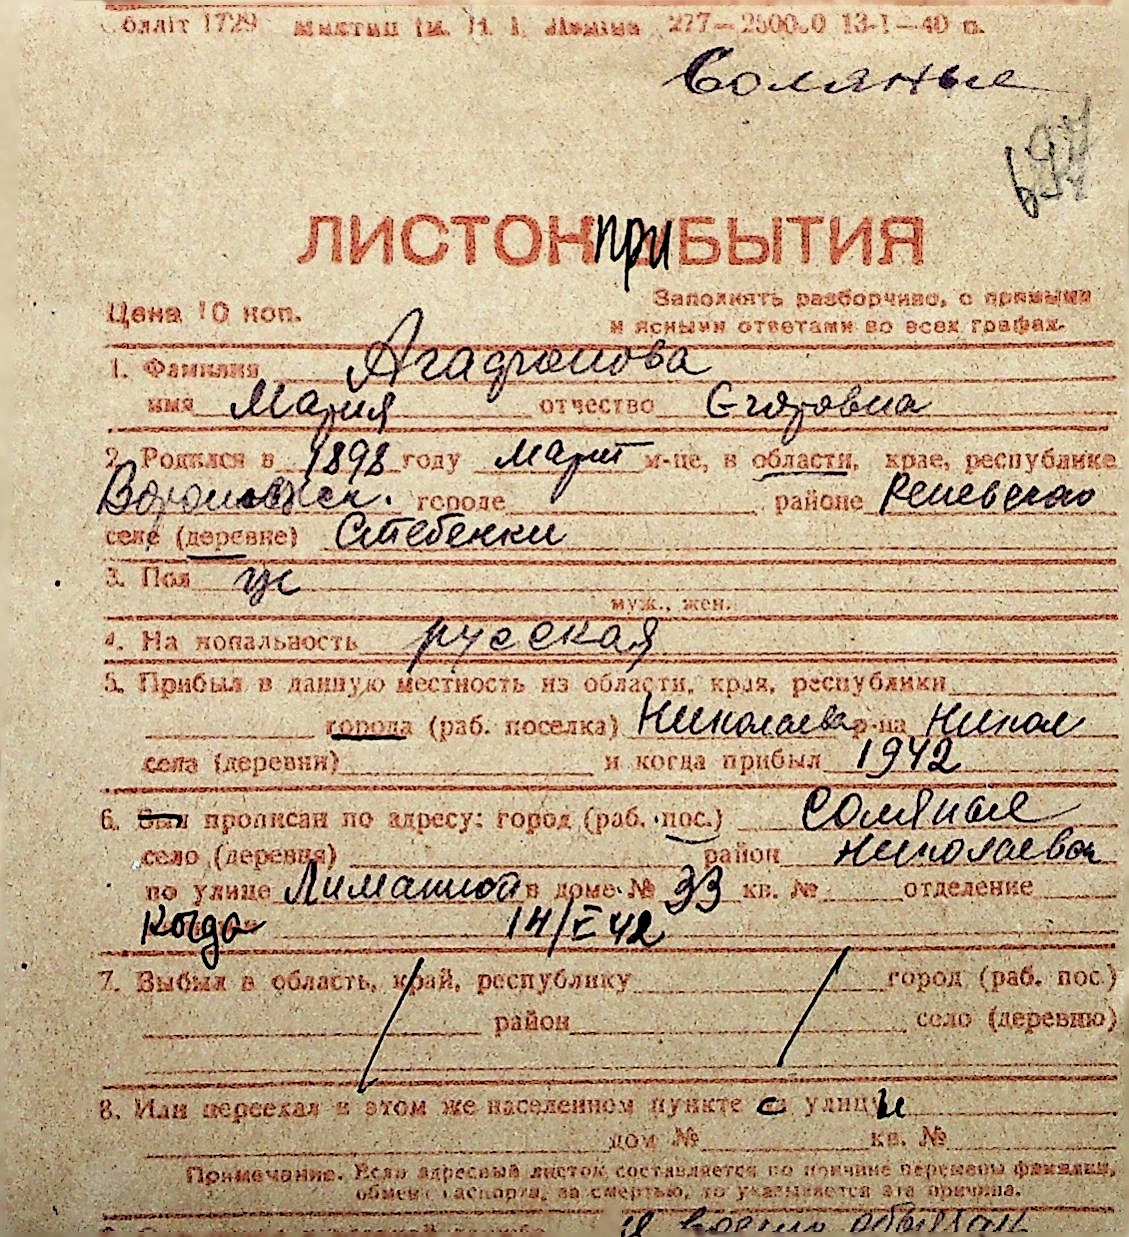 Соляные
ЛИСТОК ПРИБЫТИЯ
Цена 10 коп. Заполнять разборчиво, с прямыми
и ясными ответами во всех графах.
1. Фамилия Агафонова
имя Мария отчество Егоровна
2. Родился в 1898 году март м-це, в области, крае, республике
городе районе Репевского
селе (деревне) Стебенки
3. Пол
муж., жен.
4. Национальность русская
5. Прибыл в данную местность из области, края, республики
города (раб. поселка) Николаева р-на Никол
села (деревни) и когда прибыл 1942
6. Был прописан по адресу: город (раб. пос.) Соляные
село (деревня) район Николаевск
по улице Лиманной в доме № 33 кв. № отделение
Когда
7. Выбыл в область, край, республику город (раб. пос.)
район село (деревню)
8. Или переехал в этом же населенном пункте с улицы
дом № кв. №
Примечание. Если адресный листок составляется по причине перемены фамилии,
обмена паспорта, за смертью, то указывается эта причина.